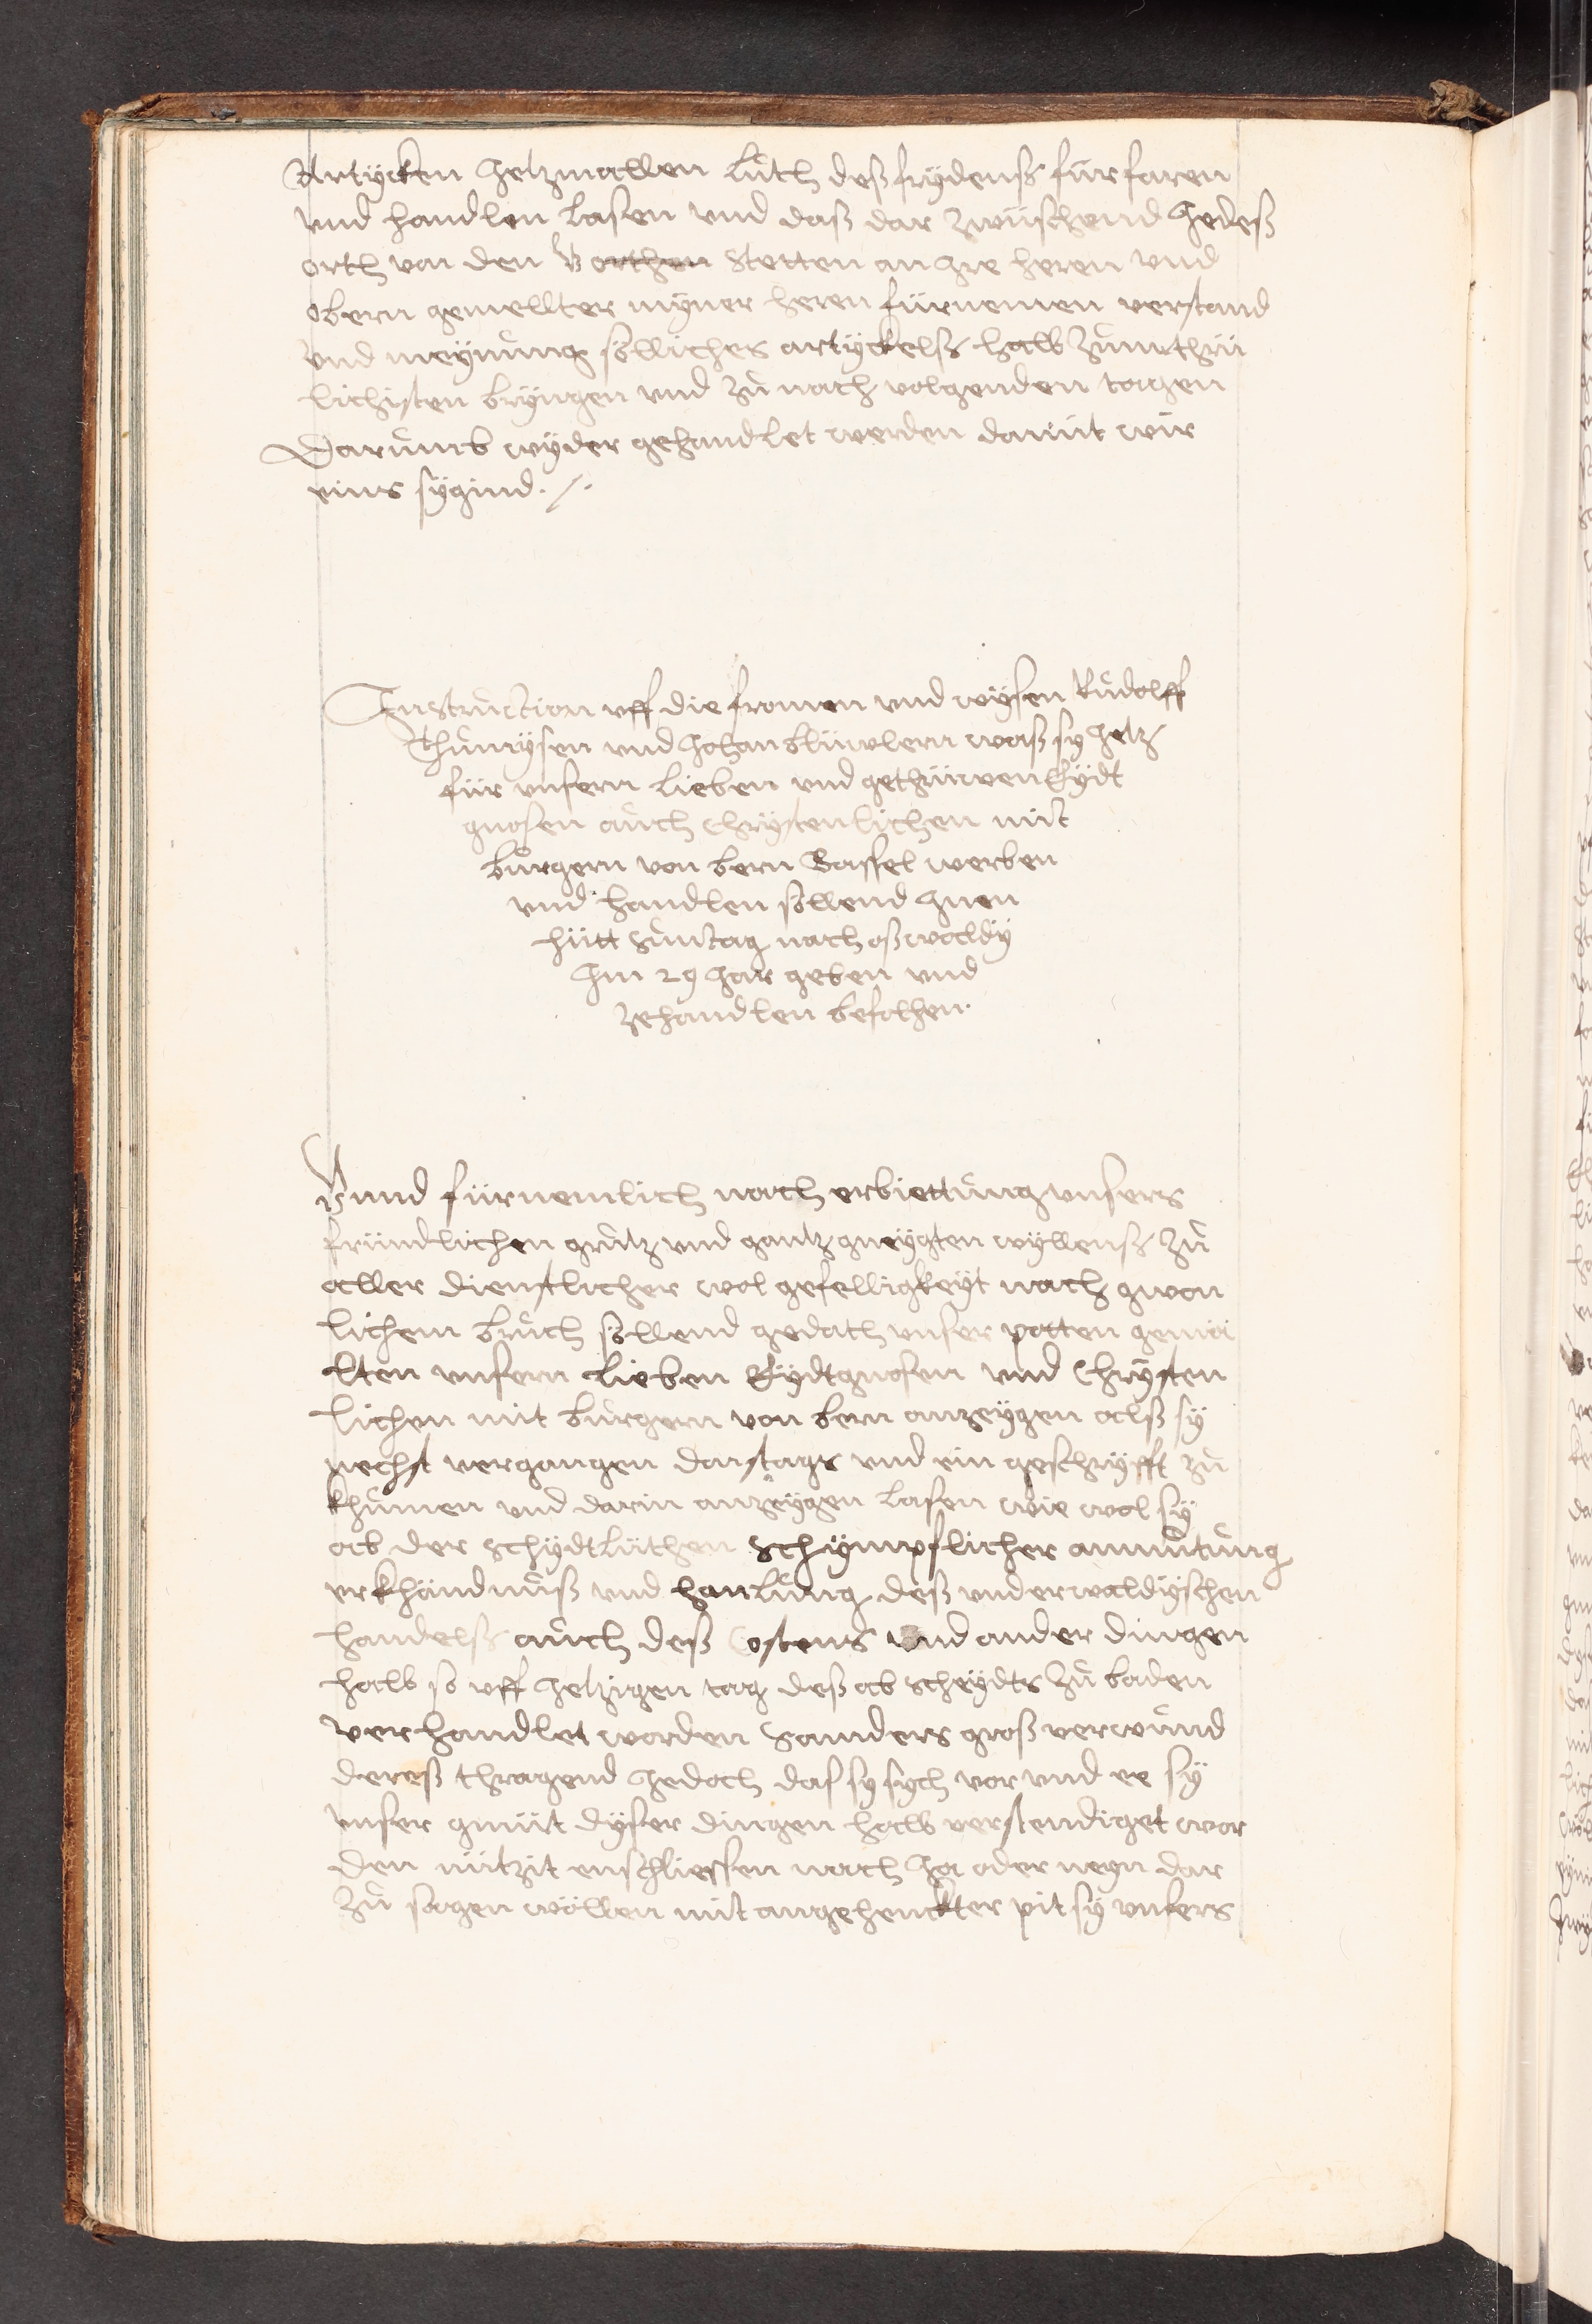 Artÿcken Jetzmallen lúth deß frÿdenß fúrfaren
vnd handlen lasen vnd daß dar zwúschend Jedeß
orth von den V orthen Stetten an Jre heren vnd
obern gemellter mÿner heren fürnemen verstand
vnd meÿnung söllicher artÿckelß halb
lichisten brÿngen vnd zů nach volgenden tagen
Darumb wÿder gehandlet werden damit wir
eins sÿgind ./.
Instruction vff die fromen vnd wÿsen Růdolff
Thumÿsen vnd Johan blüwlern waß sy Jetz
für vnsern lieben vnd gethrüwen Eÿdt
gnosen auch Chrÿstenlichen mit
burgern von bern Bassel werben
vnd handlen söllend Jnen
hütt Suntag nach oßwaldÿ
Jm 29 Jar geben vnd
zehandlen befolhen.
Vnnd fürnemlich nach erbiettung vnsers
fründlichen grůtz vnd gantz gneÿgten wÿllenß zů
aller dienstlicher wol gefelligkeÿt nach gwon
lichem bruch söllend gedach vnser potten gemä
lten vnsern lieben Eÿdtgnosen vnd Chrÿsten
lichen mit burgern von bern anzeÿgen alß sÿ
nechst vergangen donstags vnd ein geschrÿfft zů
khumen vnd darin anzeÿgen lasen wie wol sÿ
ab der schÿdtlüthen schÿmpflicher anmůtung
erkhändnuß vnd hanlung deß vnderwaldÿschen
handelß auch deß Costens vnd ander dingen
halb so vff Jetzigen tag deß ab scheÿdts zů baden
verhandlet worden Sannders groß verwund
dereß thragend Jedoch das sy sych vor vnd ee sÿ
vnser gmüt dÿser dingen halb verstendiget wor
den nützit enschliessen nach Ja oder neyn dar
zů sagen wöllen mit angehenckter pit sÿ vnsers